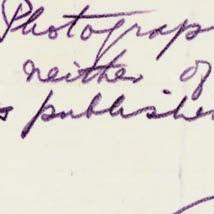 Photograp
neither of
s publishe